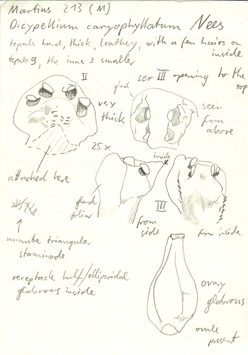 Martius 213 (M)
Dicypellium caryophyllatum Nees
tepals hard, thick, leathery, with a few hairs on
inside
tepals 9, the inner 3 smaller
II
gland
ser III opening to the top
very
thick
seen
from
above
25x
attached here
inside
gland
III
from
side
from inside
minute triangular
staminode
receptacle half/ellipsoidal
glabrous inside
ovary
glabrous
ovule
present